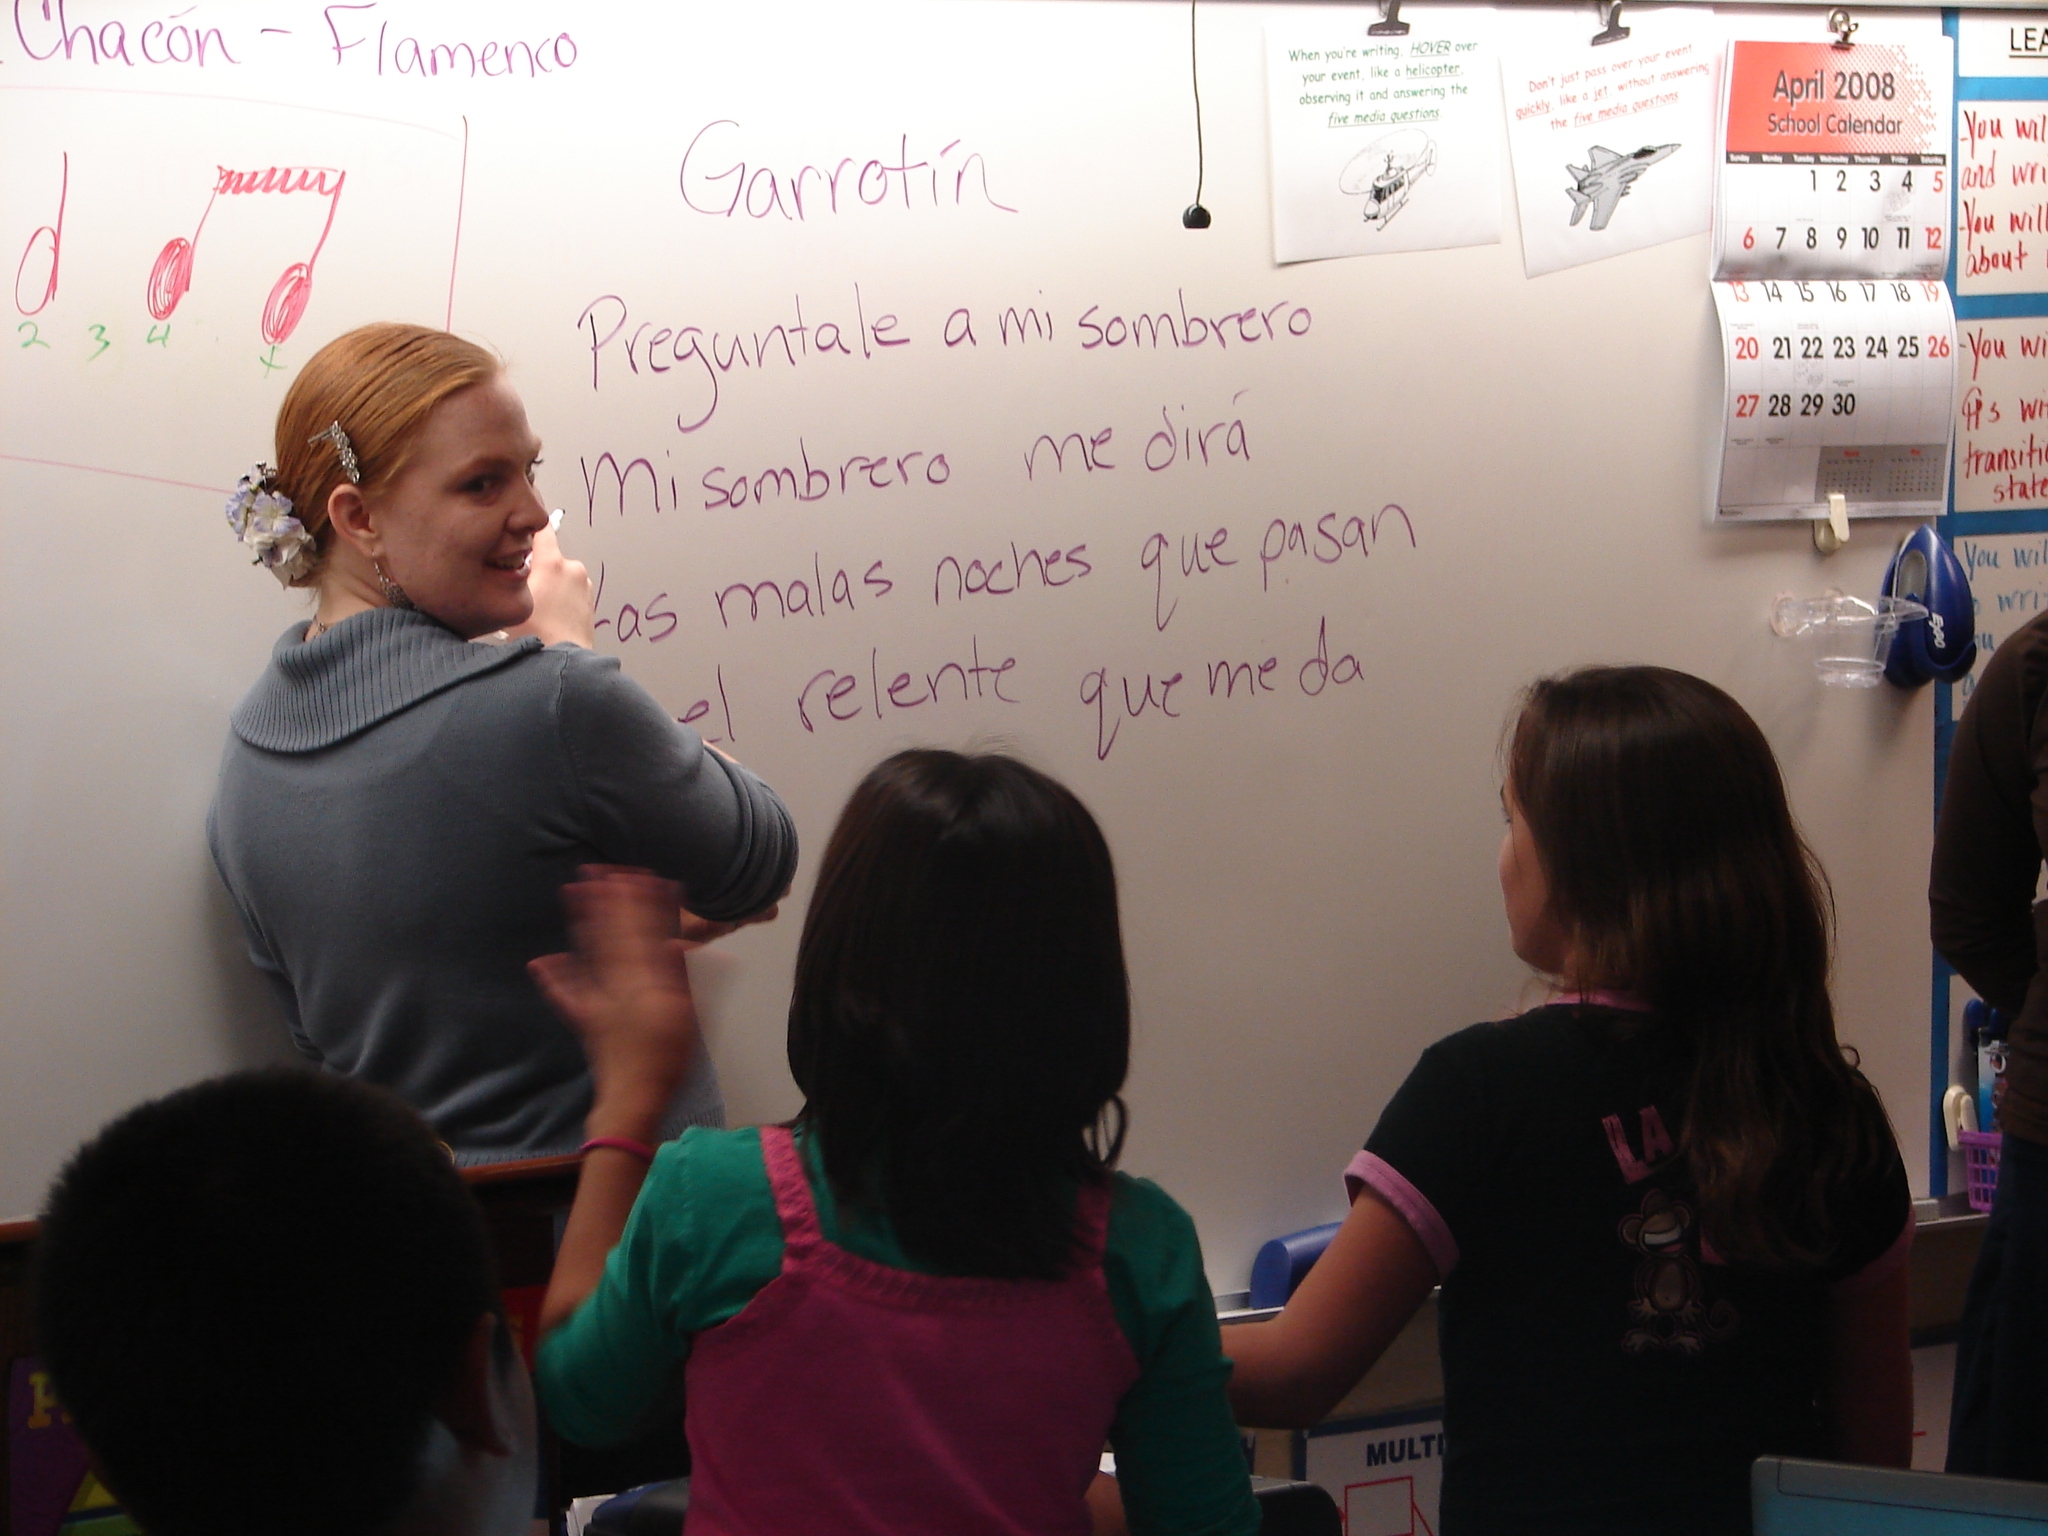 Chacón - Flamenco
2 3 4 . +
Garrotín
Preguntale a mi sombrero
Mi sombrero me dirá
Las malas noches que pasan
el relente que me da
When you're writing, HOVER over
your event, like a helicopter,
observing it and answering the
five media questions.
Don't just pass over your event
quickly, like a jet, without answering
the five media questions
April 2008
School Calendar
Sunday Monday Tuesday Wednesday Thursday Friday Saturday
1 2 3 4 5
6 7 8 9 10 11 12
13 14 15 16 17 18 19
20 21 22 23 24 25 26
27 28 29 30
LEA
-You wil
and wri
-You will
about
-You wi
wi
transiti
state
You wil
wri
EXPO
LA
MULTI